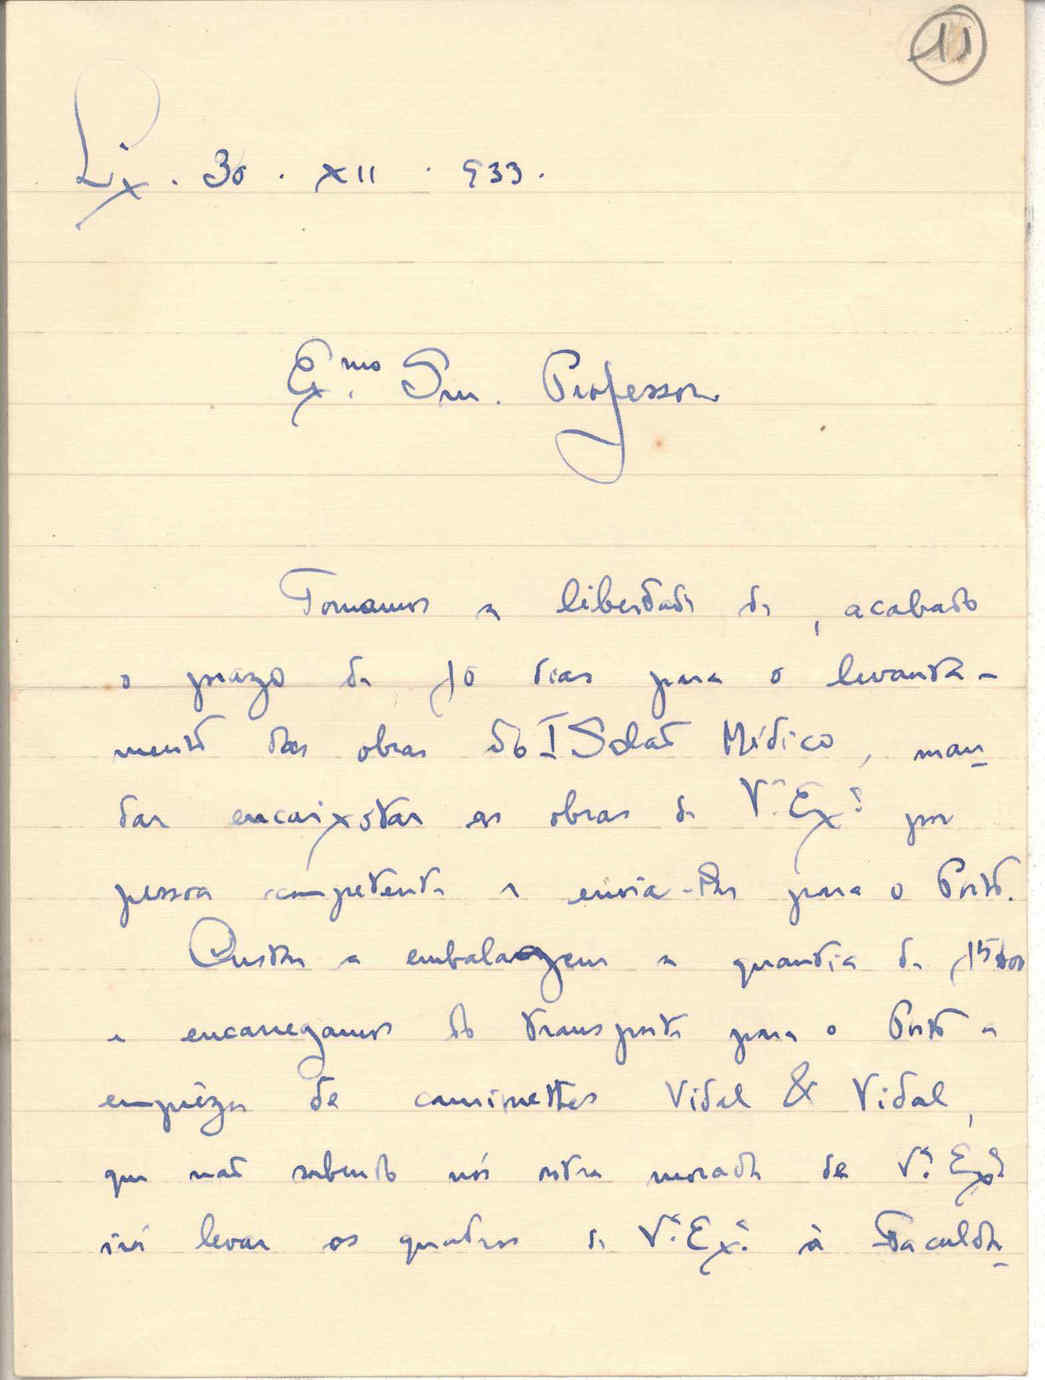 11
Lix. 30. XII. 933.
Ex.mo Snr. Professor
Tomamos a liberdade de, acabado
o prazo de 10 dias para o levanta-
mento das obras do I Salão Médico, man-
dar encaixotar as obras de V.ª Ex.ª por
pessoa competente e envia-las para o Porto.
Custou a embalagem a quantia de 15$00
e encarregamos do transporte para o Porto a
emprêza de camionettes Vidal & Vidal,
que não sabendo nós outra morada de V.ª Ex.ª
irá levar os quadros de V.ª Ex.ª à Faculda-